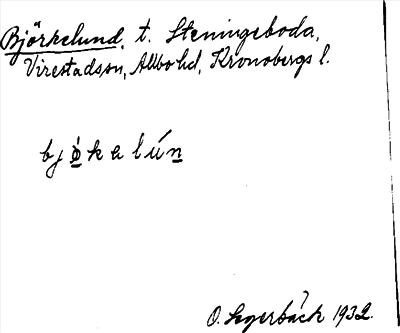 Björkelund, t. Steningeboda,
Virestadssn, Allbo hd, Kronobergs l.
bjö̀kalún
O. Segerbäck 1932.